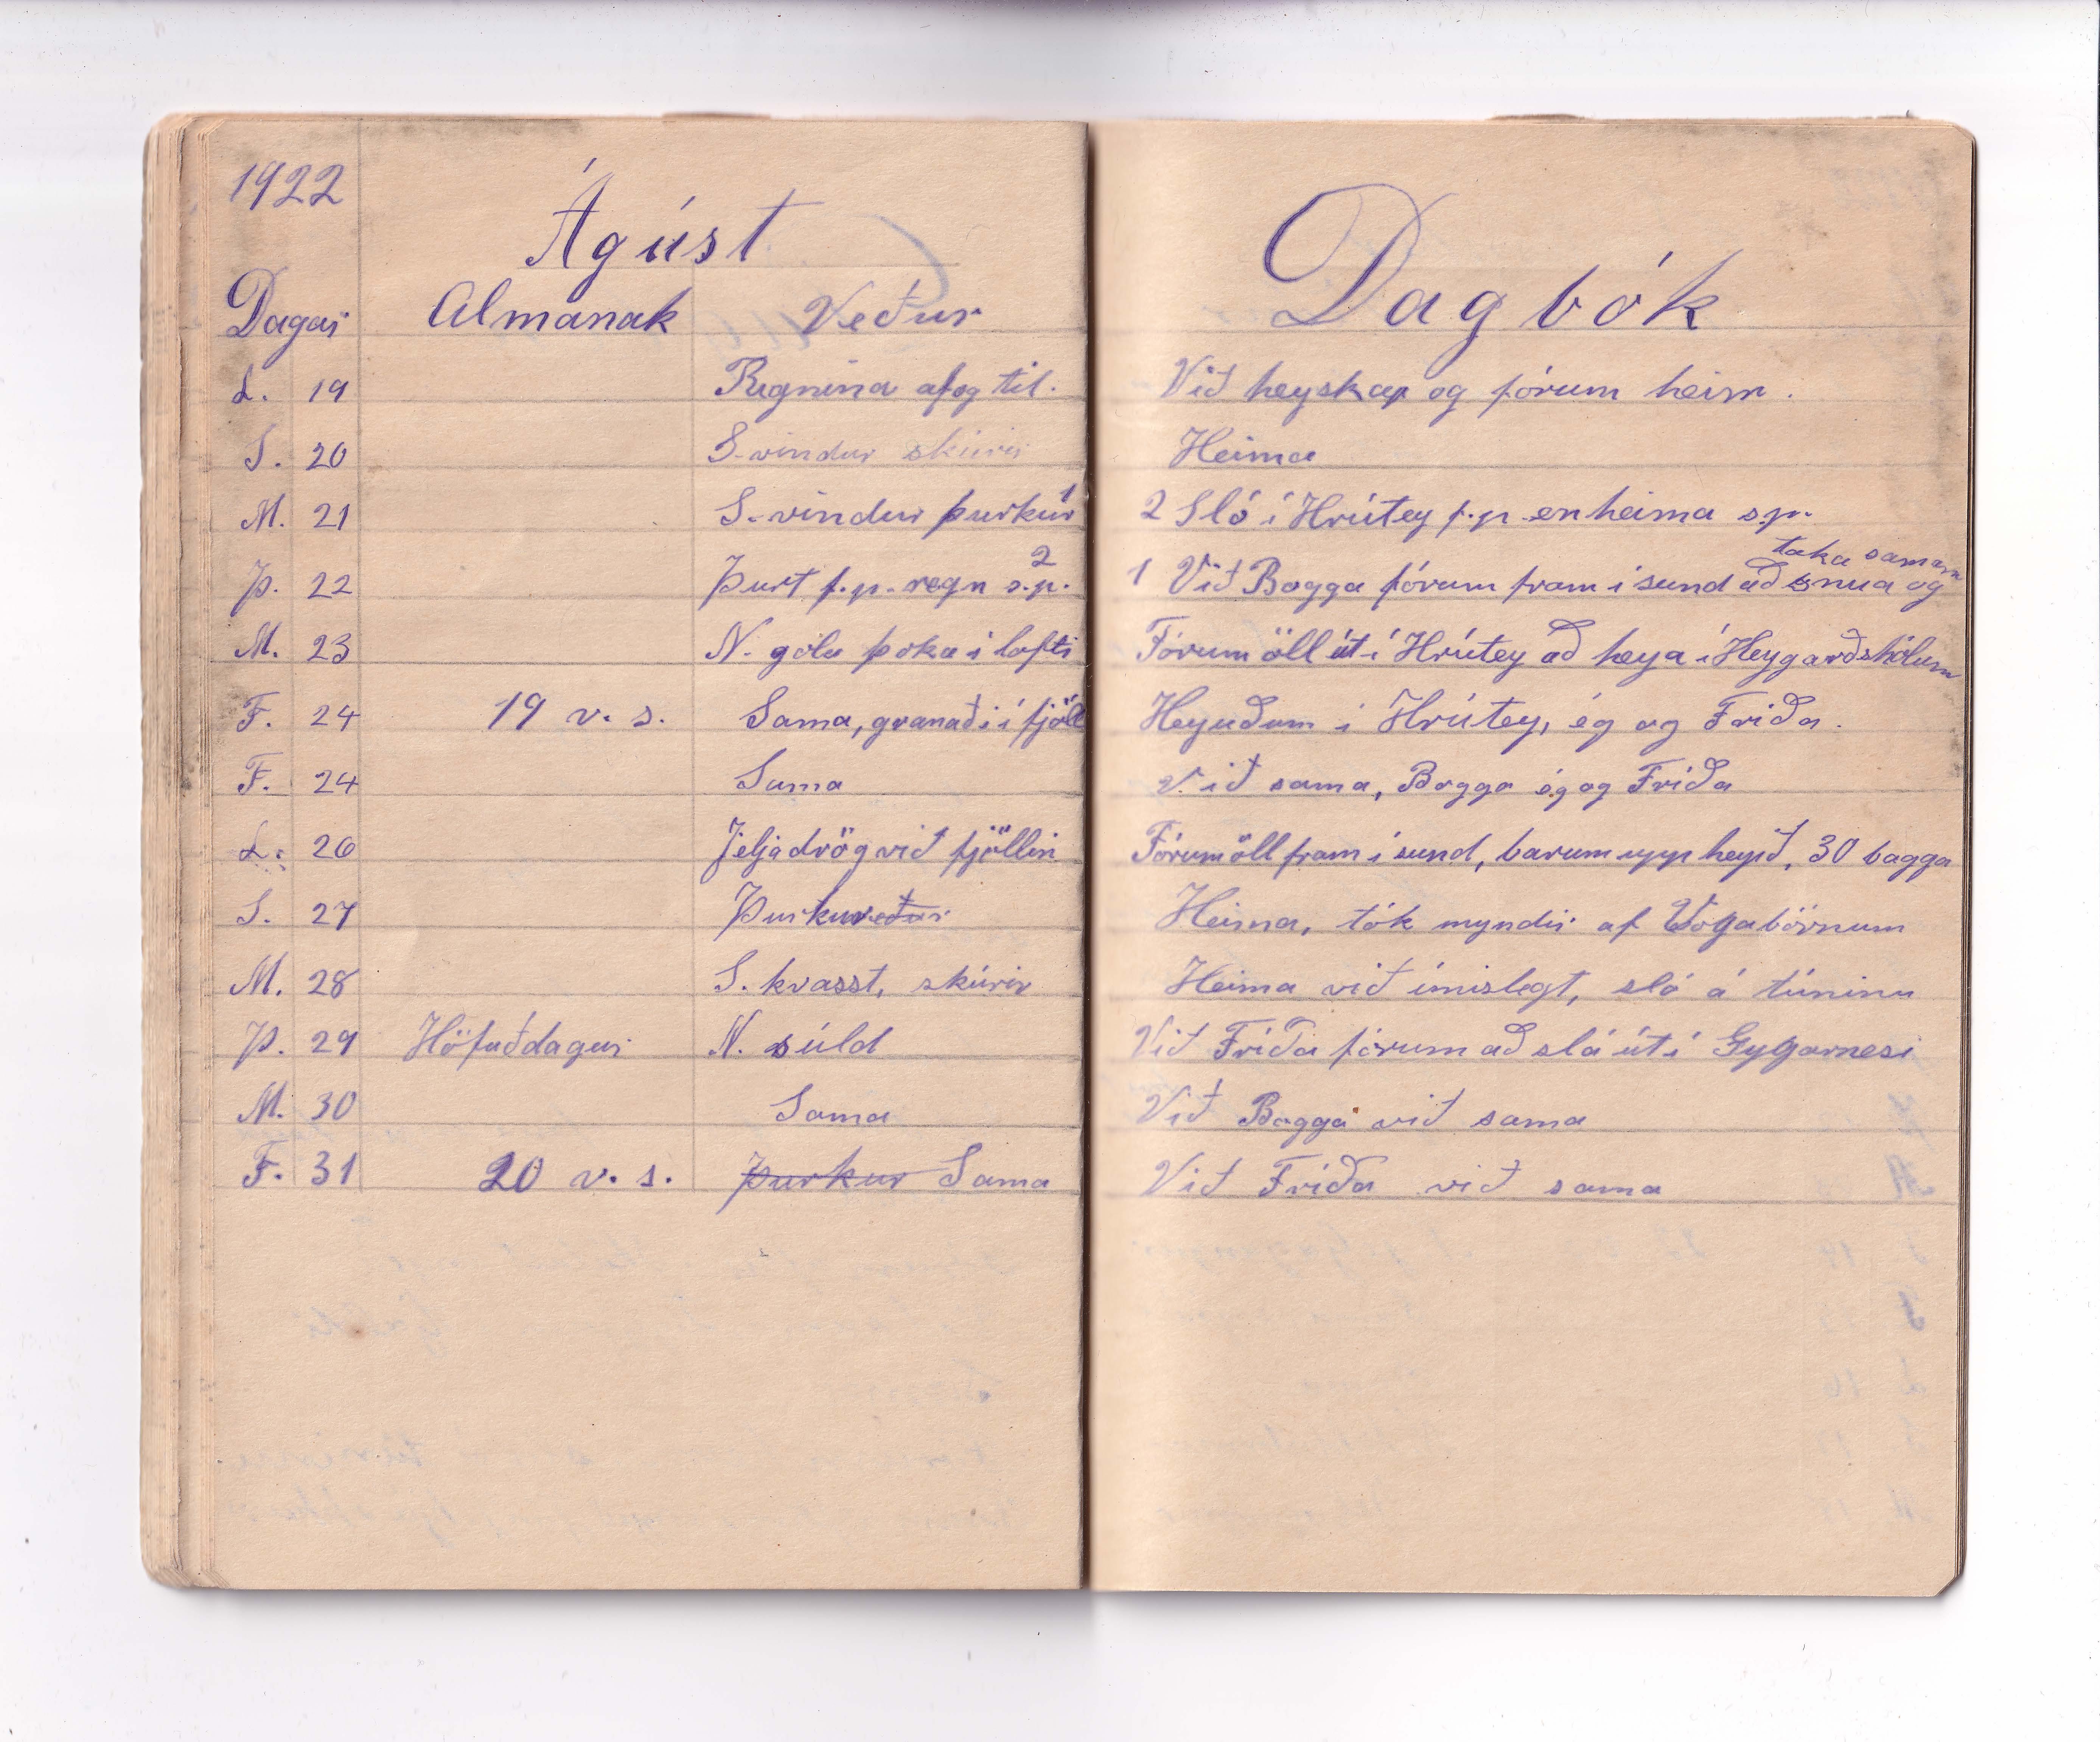 1922
Ágúst
Dagar Almanak Veður
L. 19 Rigning af og til.
S. 20 S-vindur skúrir
M. 21 S-vindur þurkur 1
Þ. 22 Þurt f.p. regn s.p. 2
M. 23 N- gola þoka í lofti
F. 24 19 v. s. Sama, granaði í fjöll
F. 24 Sama
L. 26 Jeljadrög við fjöllin
S. 27 Þurkuveður
M. 28 S. kvasst, skúrir
Þ. 29 Höfuðdagur N. súld
M. 30 Sama
F. 31 20 v. s. Þurkur Sama
Dagbók
Við heyskap og fórum heim.
Heima
2 Sló í Hrútey f.p. en heima s.p.
taka saman
1 Við Bogga fórum fram í sund að snua og
Fórum öll út í Hrútey að heya í Heygarðshólum
Heyuðum í Hrútey, ég og Fríða.
Við sama, Bogga ég og Fríða
Fórum öll fram í sund, barum upp heyið, 30 bagga
Heima, tók myndir af Vogabörnum
Heima við ímislegt, sló á túninu
Við Fríða fórum að slá út í Gygarnesi
Við Bogga við sama
Við Fríða við sama